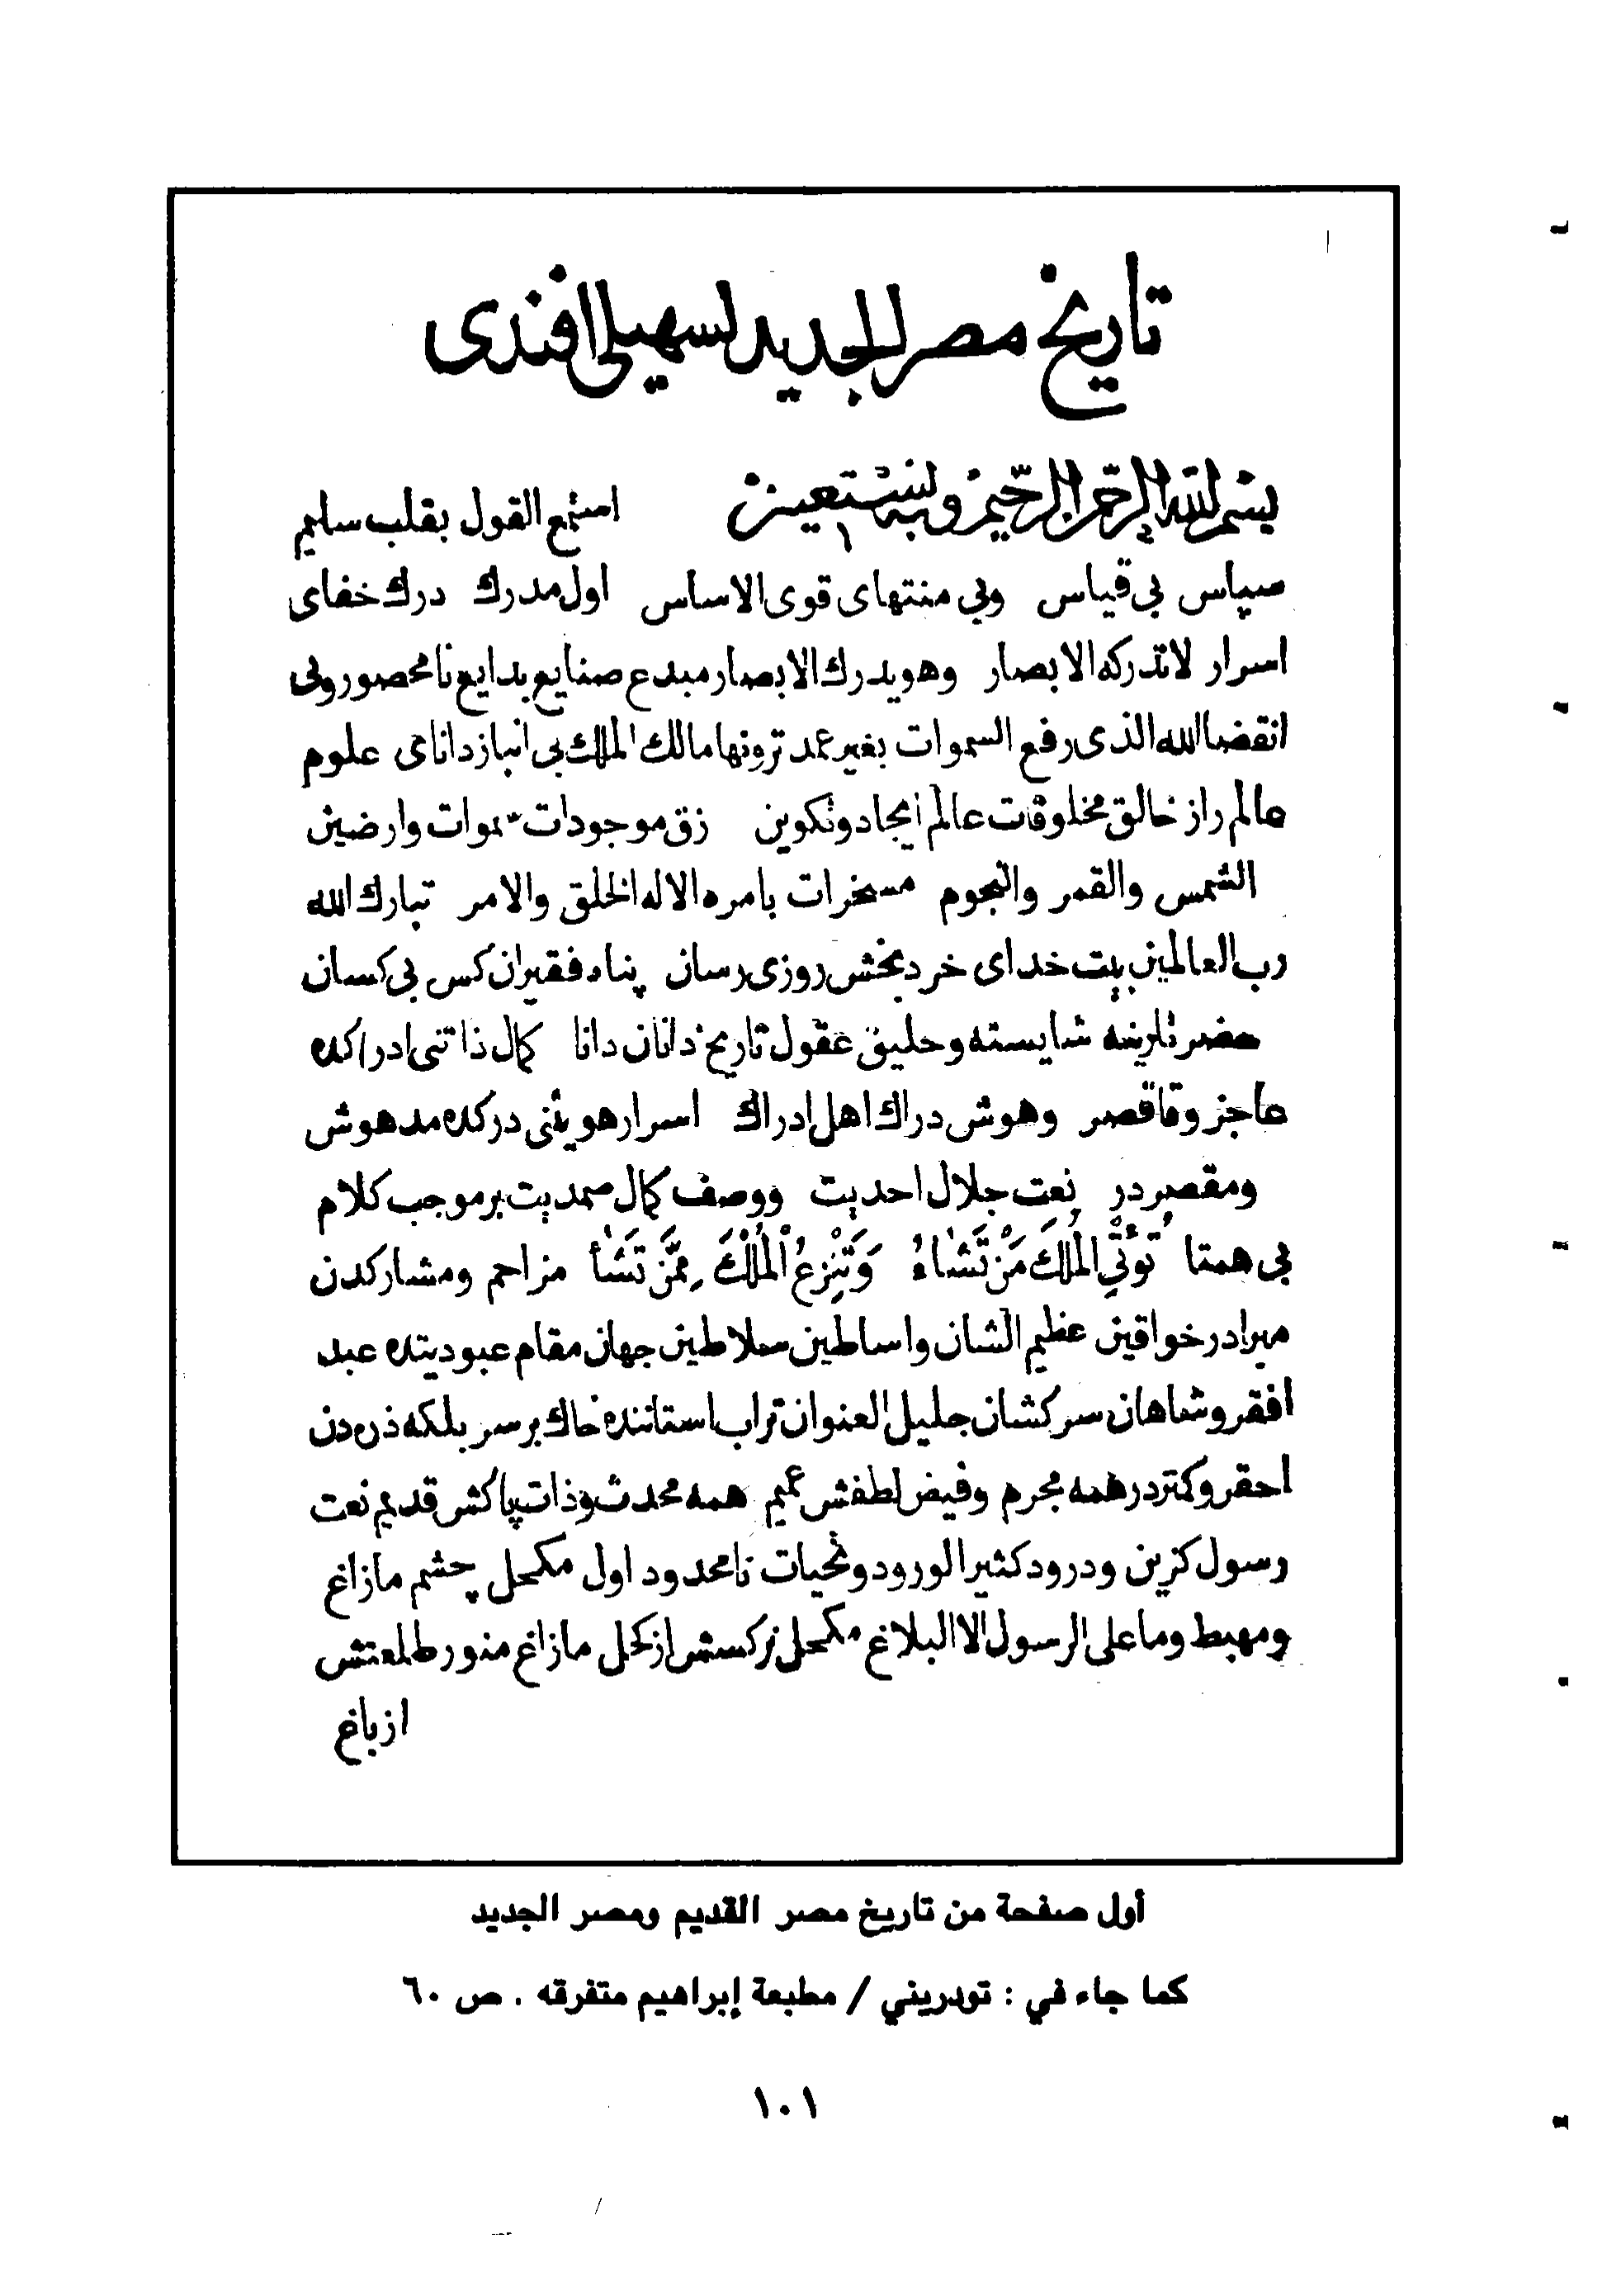 تاريخ مصر الجديد لسهيلى افندى
بسم الله الرحمن الرحيم وبه نستعين استمع القول بقلب سليم
سپاس بى قياس وبى منتهاى قوى الاساس اول مدرك درك خفاى
اسرار لا تدركه الابصار وهو يدرك الابصار مبدع صنايع بدايع نامحصور وبى
انقضا الله الذى رفع السموات بغير عمد ترونها مالك الملك بى انباز داناى علوم
عالم راز خالق مخلوقات عالم ايجاد وتكوين زق موجودات سموات وارضين
الشمس والقمر والنجوم مسخرات بامره الا له الخلق والامر تبارك الله
رب العالمين بيت خداى خرد بخش روزى رسان پناه فقيران كس بى كسان
حضرتلرينه شايسته وحليق عقول تاريخ دانان دانا كمال ذاتنى ادراكده
عاجز وقاقصر وهوش دراك اهل ادراك اسرار هويتنى دركده مدهوش
ومقصر در نعت جلال احديت ووصف كمال صمديت بر موجب كلام
بى همتا تُؤْتِي الْمُلْكَ مَنْ تَشَاءُ وَتَنْزِعُ الْمُلْكَ مِمَّنْ تَشَأ مزاحم ومشاركدن
مبرادر خواقين عظيم الشان واساطين سلاطين جهان مقام عبوديتده عبد
افقر وشاهان سركشان جليل العنوان تراب استاننده خاك بر سر بلكه ذره دن
احقر وكمتردر همه مجرم وفيض لطفش عميم همه محدث وذات پاكش قديم نعت
رسول كزين ودرود كثير الورود وتحيات نامحدود اول مكحل چشم مازاغ
ومهبط وما على الرسول الا البلاغ مكحل نركسش از كحل مازاغ منور طلعتش
از باغ
أول صفحة من تاريخ مصر القديم ومصر الجديد
كما جاء في : تودريني / مطبعة إبراهيم متفرقه . ص ٦٠
١٠١